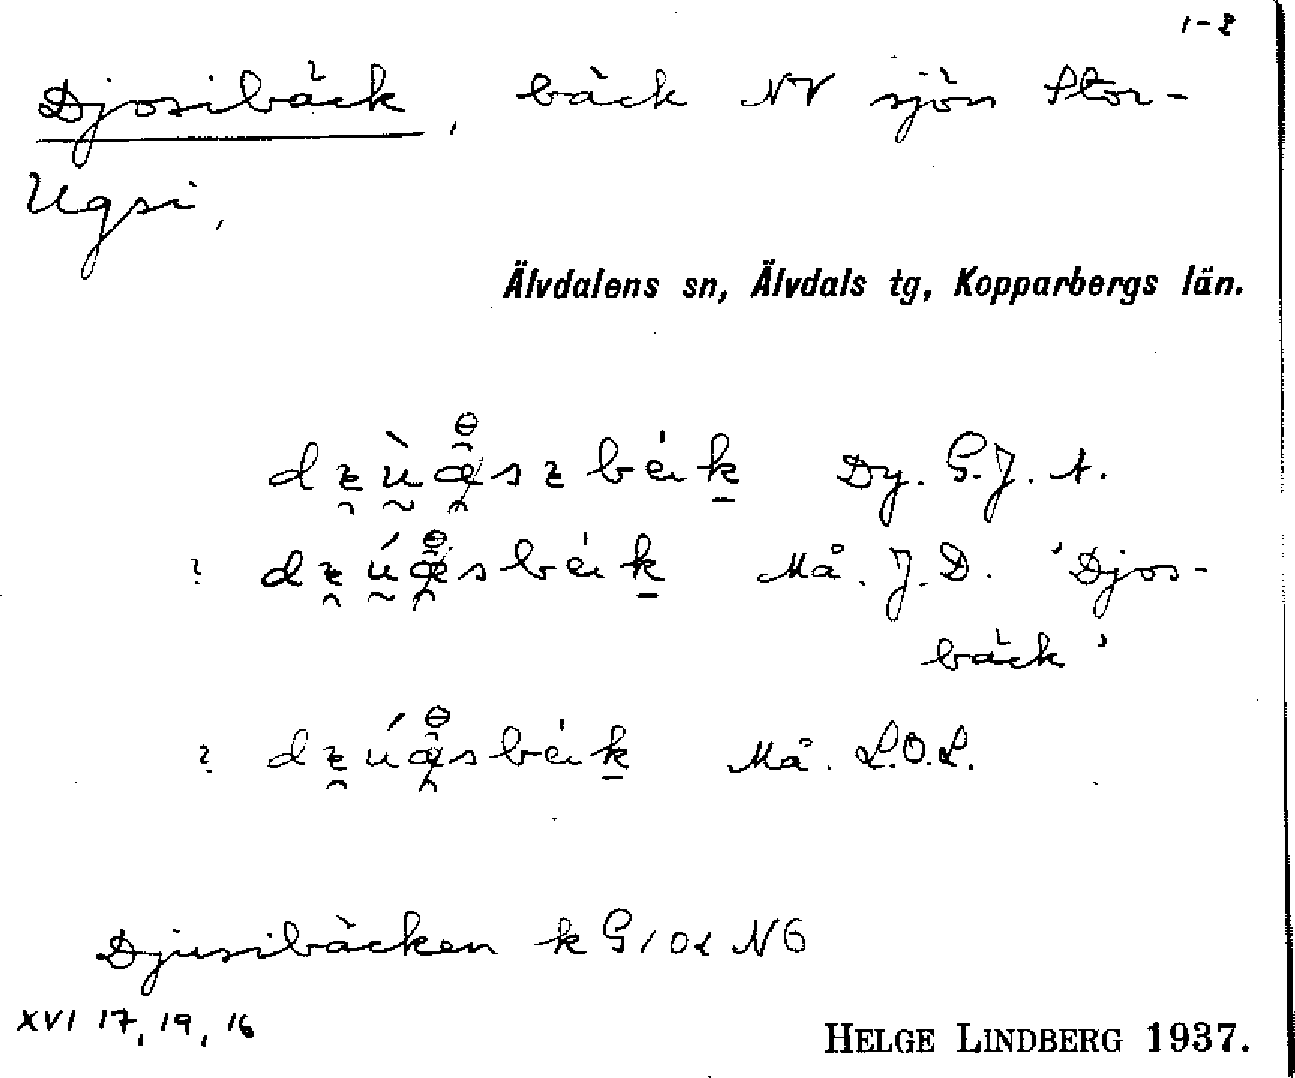 1-2
Djosibäck, bäck NV sjön Stor-
Ugsi,
Älvdalens sn, Älvdals tg, Kopparbergs län.
Dy. G.J. A.
? Må. J. D. 'Djos-
bäck'
? Må. L.O.L.
Djusibäcken k G102 NG
XVI 17, 19, 16
HELGE LINDBERG 1937.